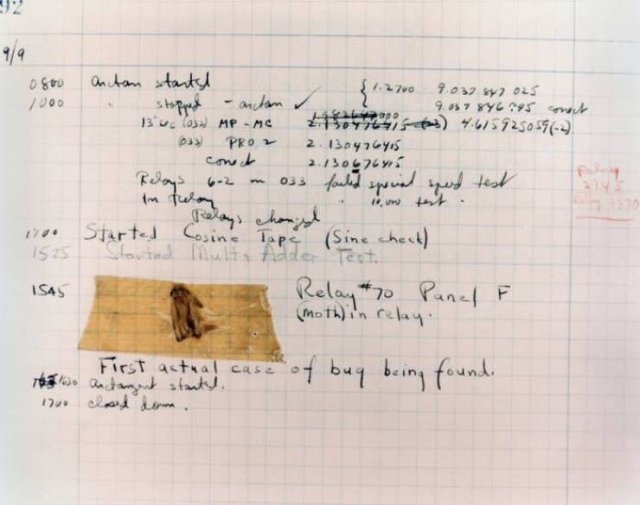 92
9/9
0800 arctan started { 1.2700 9.037 847 025
1000 " stopped - arctan ✓ 9.037 846 995 correct
13"uc (032) MP - MC 2.130476415 4.615925059(-2)
(033) PRO 2 2.130476415
correct 2.130676415
Relays 6-2 in 033 failed special speed test
In Relay " 10.000 test .
Relays changed
Started Cosine Tape (Sine check)
1525 Started Mult+Adder Test.
1545 Relay #70 Panel F
(moth) in relay.
First actual case of bug being found.
1630 arctangent started.
1700 closed down .
Relay